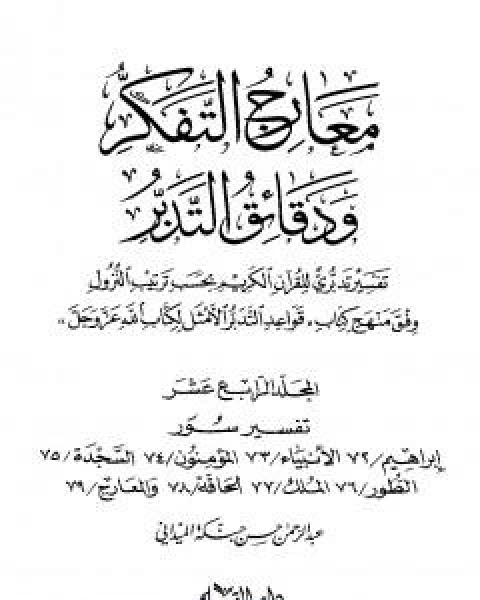 مَعَارِجُ التَّفَكُّرِ
وَدَقَائِقُ التَّدَبُّرِ
تَفْسِيرٌ تَدَبُّرِيٌّ لِلْقُرْآنِ الْكَرِيمِ بِحَسَبِ تَرْتِيبِ النُّزُولِ
وِفْقَ مَنْهَجِ كِتَابِ « قَوَاعِدِ التَّدَبُّرِ الْأَمْثَلِ لِكِتَابِ اللهِ عَزَّ وَجَلَّ »
المجلد الرابع عشر
تفسير سور
إبراهيم/٧٢ الأنبياء/٧٣ المؤمنون/٧٤ السجدة/٧٥
الطور/٧٦ الملك/٧٧ الحاقة/٧٨ والمعارج/٧٩
عبد الرحمن حسن حبنكة الميداني
دار القلم